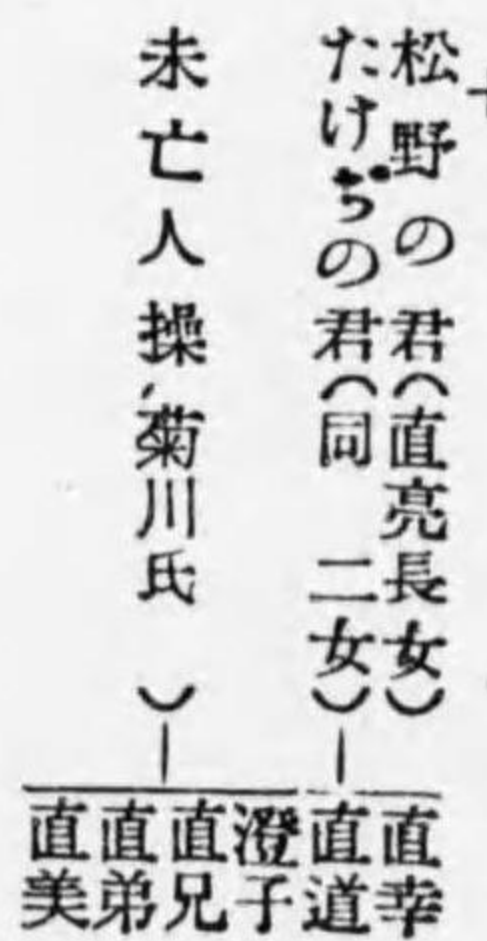 松野の君(直亮長女)
たけぢの君(同 二女)
未亡人操、菊川氏 )
直幸
直道
澄子
直兄
直弟
直美